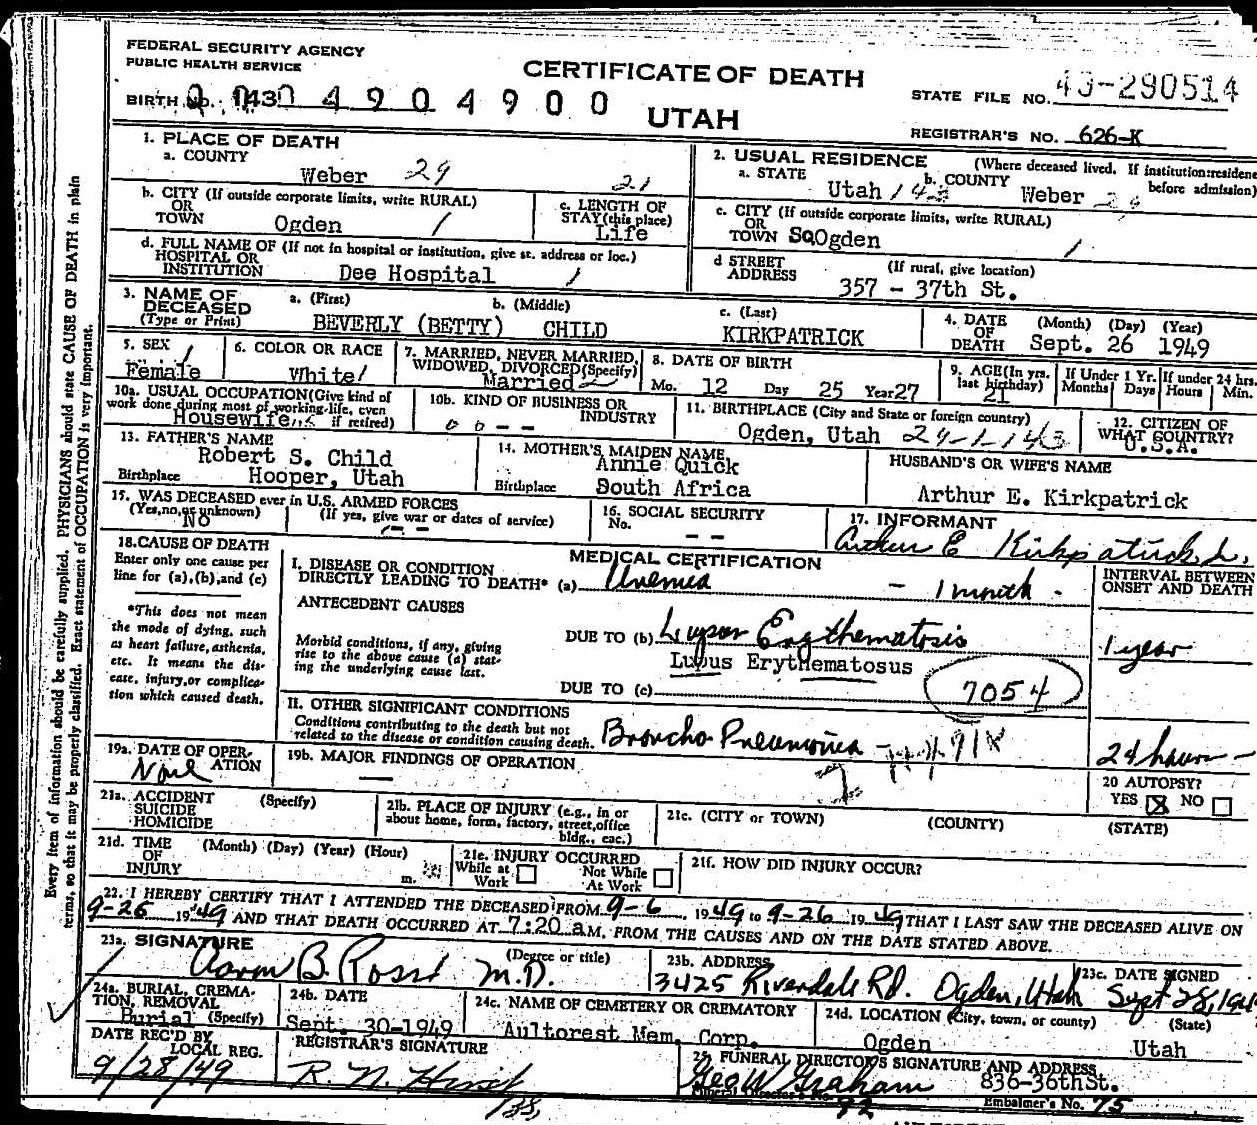 FEDERAL SECURITY AGENCY
PUBLIC HEALTH SERVICE
CERTIFICATE OF DEATH
UTAH
BIRTH No. 143 0 4 9 0 4 9 0 0
STATE FILE NO. 43-290514
REGISTRAR'S NO. 626-K
1. PLACE OF DEATH
a. COUNTY
Weber 29
21
b. CITY (If outside corporate limits, write RURAL)
OR
TOWN Ogden 1
c. LENGTH OF
STAY (this place)
Life
d. FULL NAME OF (If not in hospital or institution, give st. address or loc.)
HOSPITAL OR
INSTITUTION Dee Hospital 1
2. USUAL RESIDENCE (Where deceased lived. If institution:residene
before admission)
a. STATE Utah 143 b. COUNTY Weber 29
c. CITY (If outside corporate limits, write RURAL)
OR
TOWN SoOgden 1
d STREET
ADDRESS (If rural, give location)
357 - 37th St.
3. NAME OF
DECEASED
(Type or Print)
a. (First) b. (Middle) c. (Last)
BEVERLY (BETTY) CHILD KIRKPATRICK
4. DATE
OF
DEATH
(Month) (Day) (Year)
Sept. 26 1949
5. SEX 1
Female
6. COLOR OR RACE
White/
7. MARRIED, NEVER MARRIED,
WIDOWED, DIVORCED(Specify)
Married 2
8. DATE OF BIRTH
Mo. 12 Day 25 Year 27
9. AGE(In yrs.
last birthday)
21
If Under 1 Yr.
Months Days
If under 24 hrs.
Hours Min.
10a. USUAL OCCUPATION(Give kind of
work done during most of working life, even
if retired)
Housewife
10b. KIND OF BUSINESS OR
INDUSTRY
0 0 - -
11. BIRTHPLACE (City and State or foreign country)
Ogden, Utah 29-1-143
12. CITIZEN OF
WHAT COUNTRY?
U.S.A.
13. FATHER'S NAME
Robert S. Child
Birthplace Hooper, Utah
14. MOTHER'S MAIDEN NAME
Annie Quick
Birthplace South Africa
HUSBAND'S OR WIFE'S NAME
Arthur E. Kirkpatrick
15. WAS DECEASED ever in U.S. ARMED FORCES
(Yes,no,or unknown) (If yes, give war or dates of service)
No - -
16. SOCIAL SECURITY
No. - -
17. INFORMANT
Arthur E Kirkpatrick
18.CAUSE OF DEATH
Enter only one cause per
line for (a),(b),and (c)
*This does not mean
the mode of dying, such
as heart failure,asthenia,
etc. It means the dis-
ease, injury,or complica-
tion which caused death.
MEDICAL CERTIFICATION
I. DISEASE OR CONDITION
DIRECTLY LEADING TO DEATH* (a) - 1 month.
INTERVAL BETWEEN
ONSET AND DEATH
ANTECEDENT CAUSES
Morbid conditions, if any, giving
rise to the above cause (a) stat-
ing the underlying cause last.
DUE TO (b) Erythematosis
1 year
Lupus Erythematosus
DUE TO (c)
7054
II. OTHER SIGNIFICANT CONDITIONS
Conditions contributing to the death but not
related to the disease or condition causing death.
Broncho Pneumonia -
24 hours -
19a. DATE OF OPER-
ATION
None
19b. MAJOR FINDINGS OF OPERATION
—
20 AUTOPSY?
YES ☒ NO ☐
21a. ACCIDENT
SUICIDE
HOMICIDE
(Specify)
21b. PLACE OF INJURY (e.g., in or
about home, form, factory, street,office
bldg., eac.)
21c. (CITY or TOWN) (COUNTY) (STATE)
21d. TIME
OF
INJURY
(Month) (Day) (Year) (Hour)
m.
21e. INJURY OCCURRED
While at
Work ☐
Not While
At Work ☐
21f. HOW DID INJURY OCCUR?
22. I HEREBY CERTIFY THAT I ATTENDED THE DECEASED FROM 9-6, 1949 to 9-26 1949 THAT I LAST SAW THE DECEASED ALIVE ON
9-26 1949 AND THAT DEATH OCCURRED AT 7:20 aM. FROM THE CAUSES AND ON THE DATE STATED ABOVE.
23a. SIGNATURE (Degree or title)
Aaron B. Ross M.D.
23b. ADDRESS
3425 Riverdale Rd. Ogden, Utah
23c. DATE SIGNED
Sept 28, 194
24a. BURIAL, CREMA-
TION, REMOVAL
Burial (Specify)
24b. DATE
Sept. 30-1949
24c. NAME OF CEMETERY OR CREMATORY
Aultorest Mem. Corp.
24d. LOCATION (City, town, or county) (State)
Ogden Utah
DATE REC'D BY
LOCAL REG.
9/28/49
REGISTRAR'S SIGNATURE
25 FUNERAL DIRECTOR'S SIGNATURE AND ADDRESS
Geo W Graham 836-36thSt.
Funeral Director's No. 92
Embalmer's No. 75
Every item of information should be carefully supplied. PHYSICIANS should state CAUSE OF DEATH in plain
terms, so that it may be properly classified. Exact statement of OCCUPATION is very important.